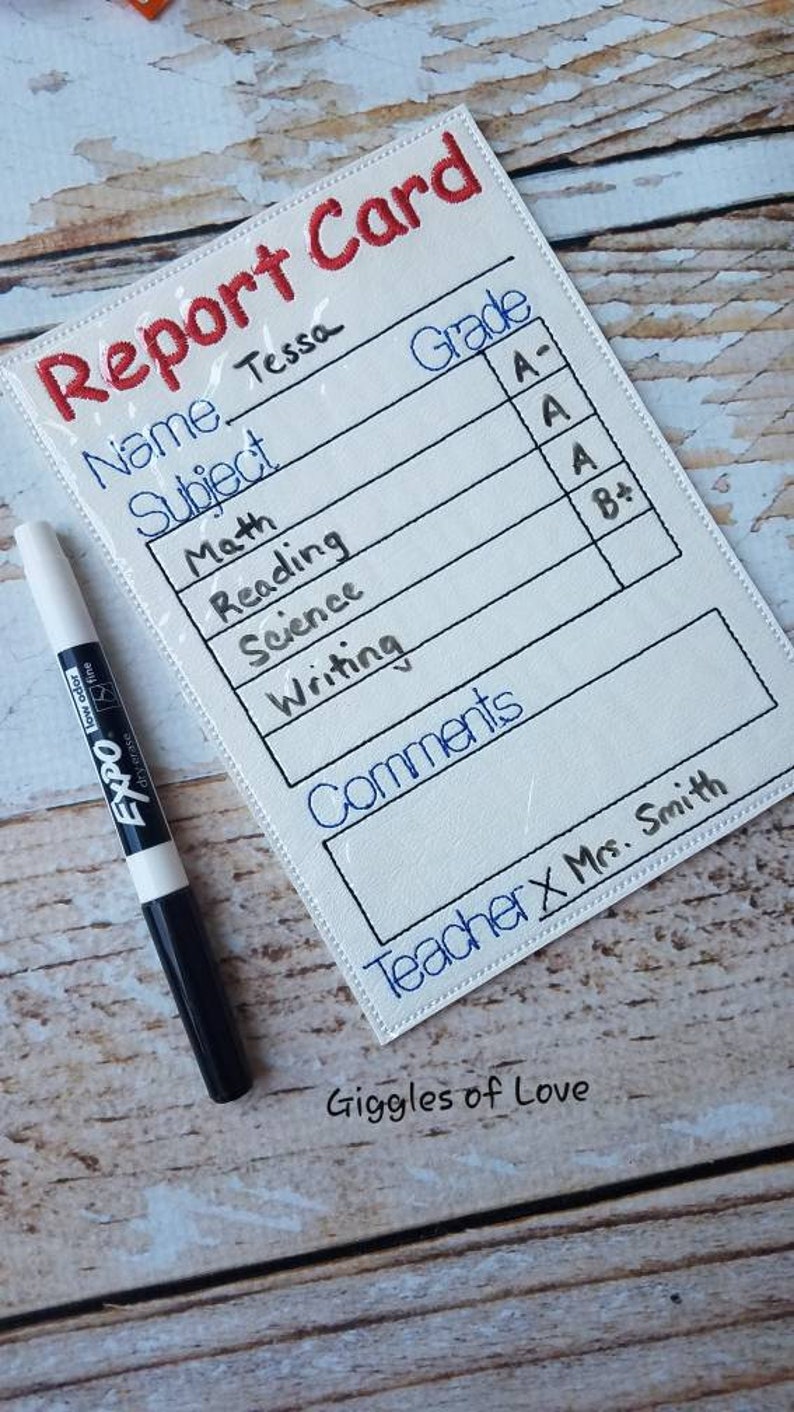 Report Card
Name Tessa
Subject Grade
Math A-
Reading A
Science A
Writing B+
Comments
Teacher X Mrs. Smith
EXPO
low odor
dry erase
fine
Giggles of Love